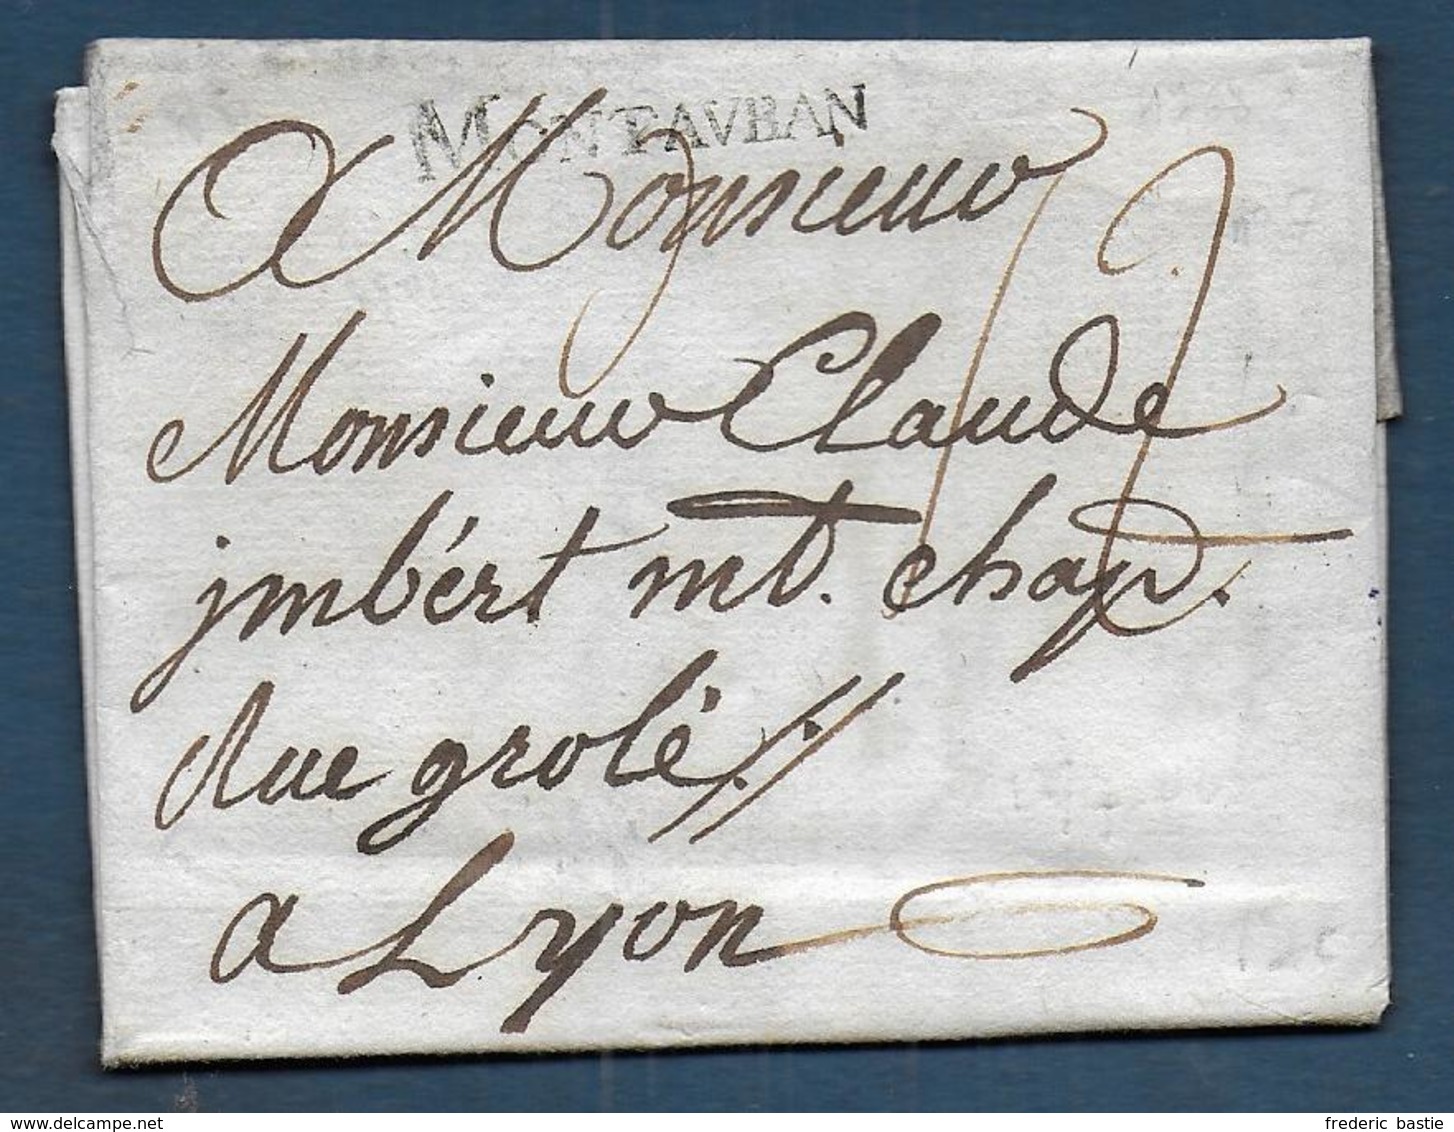 MONTAUBAN
A Monsieur
Monsieur Claude
jmbért mt. chap.
Rue grolé //
a Lyon
delcampe.net
frederic bastie